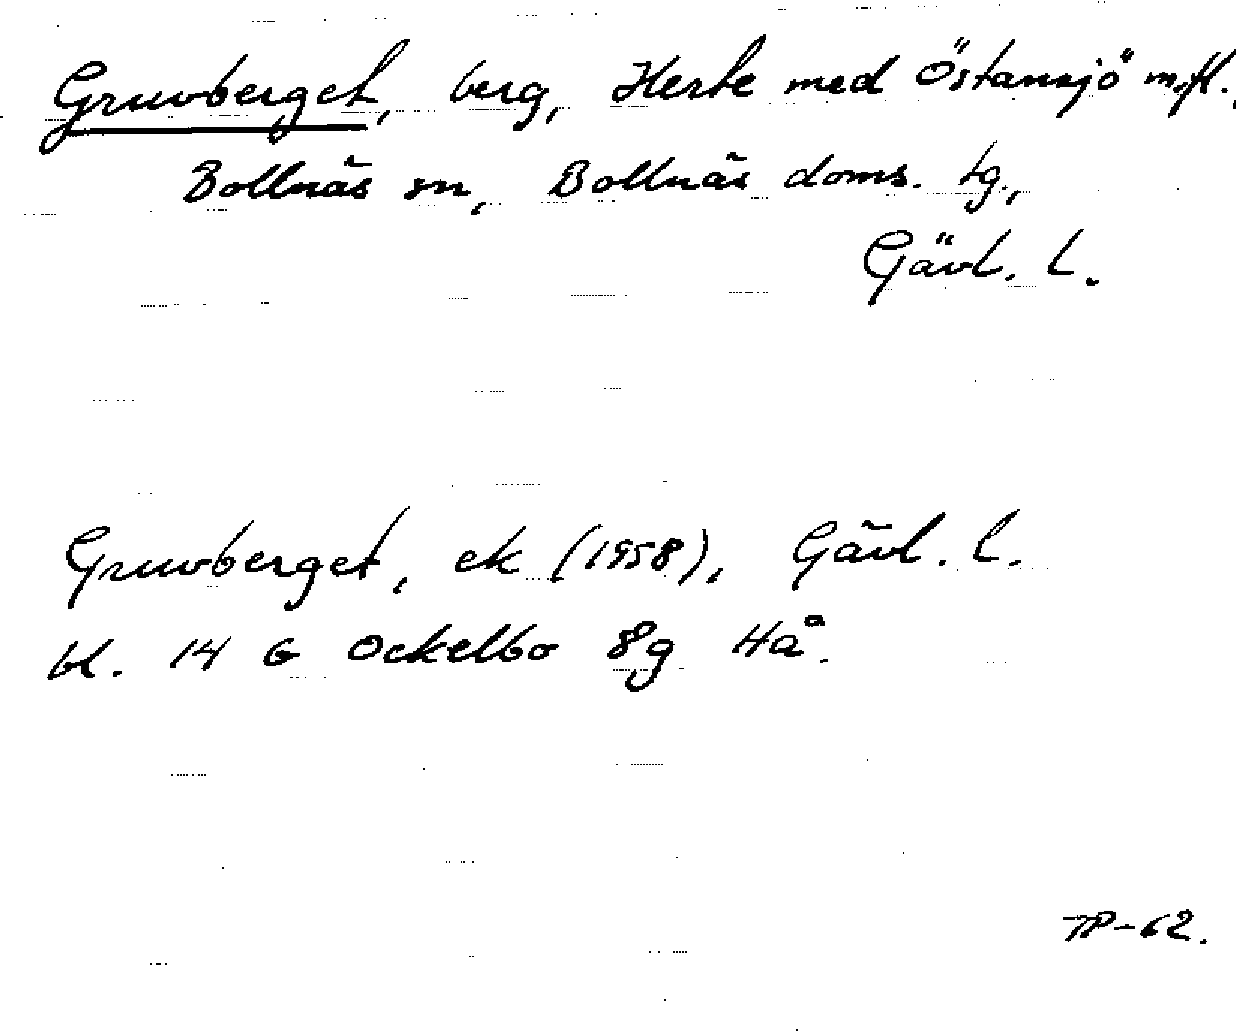 Gruvberget, berg, Herte med Östansjö m.fl.,
Bollnäs sn, Bollnäs doms. tg.,
Gävl. l.
Gruvberget, ek (1958), Gävl. l.
bl. 14 G Ockelbo 8g Hå.
TP-62.